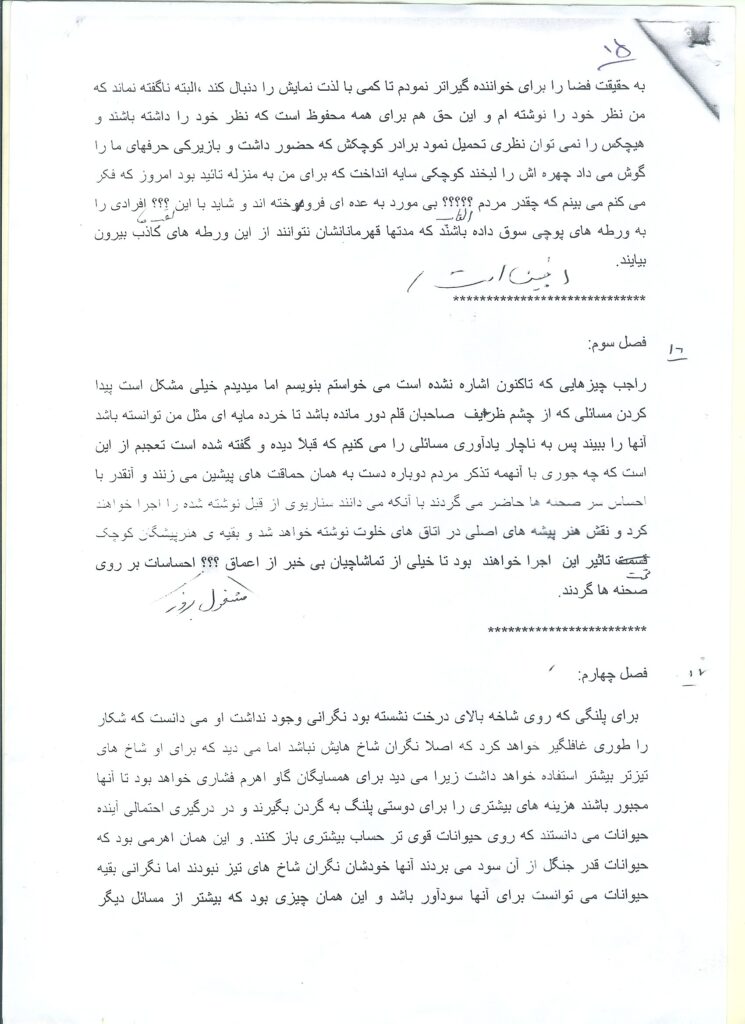 ۱۵
به حقیقت فضا را برای خواننده گیراتر نمودم تا کمی با لذت نمایش را دنبال کند ،البته ناگفته نماند که
من نظر خود را نوشته ام و این حق هم برای همه محفوظ است که نظر خود را داشته باشند و
هیچکس را نمی توان نظری تحمیل نمود برادر کوچکش که حضور داشت و بازیرکی حرفهای ما را
گوش می داد چهره اش را لبخند کوچکی سایه انداخت که برای من به منزله تائید بود امروز که فکر
می کنم می بینم که چقدر مردم ؟؟؟؟؟ بی مورد به عده ای فروخته اند و شاید با این ؟؟؟ افرادی را
القاب
به ورطه های پوچی سوق داده باشند که مدتها قهرمانانشان نتوانند از این ورطه های کاذب بیرون
بیایند.
*****************************
۱۶
فصل سوم:
راجب چیزهایی که تاکنون اشاره نشده است می خواستم بنویسم اما میدیدم خیلی مشکل است پیدا
کردن مسائلی که از چشم ظریف صاحبان قلم دور مانده باشد تا خرده مایه ای مثل من توانسته باشد
آنها را ببیند پس به ناچار یادآوری مسائلی را می کنیم که قبلاً دیده و گفته شده است تعجبم از این
است که چه جوری با آنهمه تذکر مردم دوباره دست به همان حماقت های پیشین می زنند و آنقدر با
احساس سر صحنه ها حاضر می گردند با آنکه می دانند سناریوی از قبل نوشته شده را اجرا خواهند
کرد و نقش هنر پیشه های اصلی در اتاق های خلوت نوشته خواهد شد و بقیه ی هنرپیشگان کوچک
قسمت تاثیر این اجرا خواهند بود تا خیلی از تماشاچیان بی خبر از اعماق ؟؟؟ احساسات بر روی
تحت
صحنه ها گردند.
************************
۱۷
فصل چهارم:
برای پلنگی که روی شاخه بالای درخت نشسته بود نگرانی وجود نداشت او می دانست که شکار
را طوری غافلگیر خواهد کرد که اصلا نگران شاخ هایش نباشد اما می دید که برای او شاخ های
تیزتر بیشتر استفاده خواهد داشت زیرا می دید برای همسایگان گاو اهرم فشاری خواهد بود تا آنها
مجبور باشند هزینه های بیشتری را برای دوستی پلنگ به گردن بگیرند و در درگیری احتمالی آینده
حیوانات می دانستند که روی حیوانات قوی تر حساب بیشتری باز کنند. و این همان اهرمی بود که
حیوانات قدر جنگل از آن سود می بردند آنها خودشان نگران شاخ های تیز نبودند اما نگرانی بقیه
حیوانات می توانست برای آنها سودآور باشد و این همان چیزی بود که بیشتر از مسائل دیگر